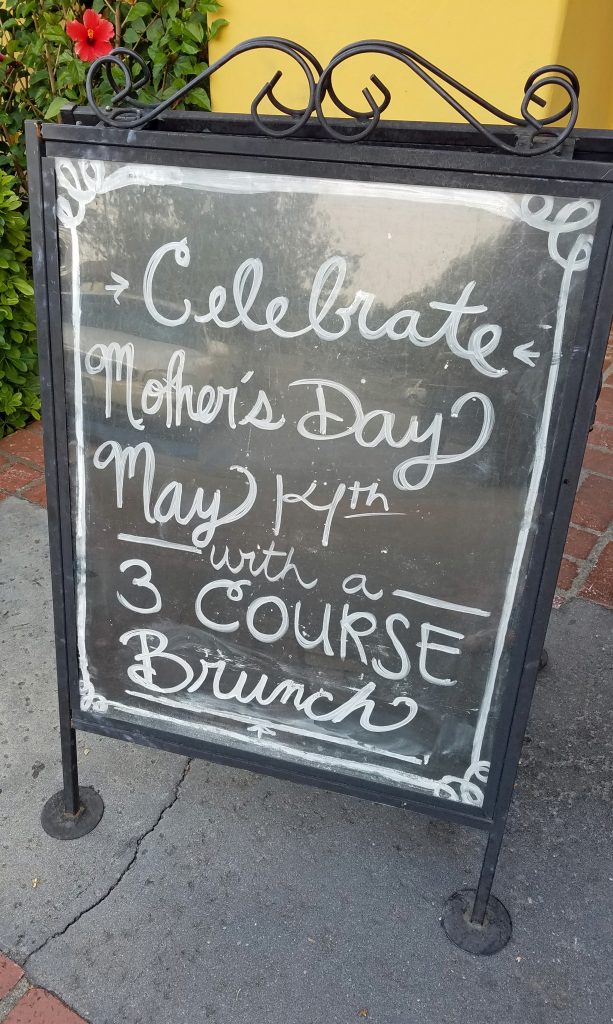 Celebrate
Mother's Day
May 14th
with a
3 COURSE
Brunch